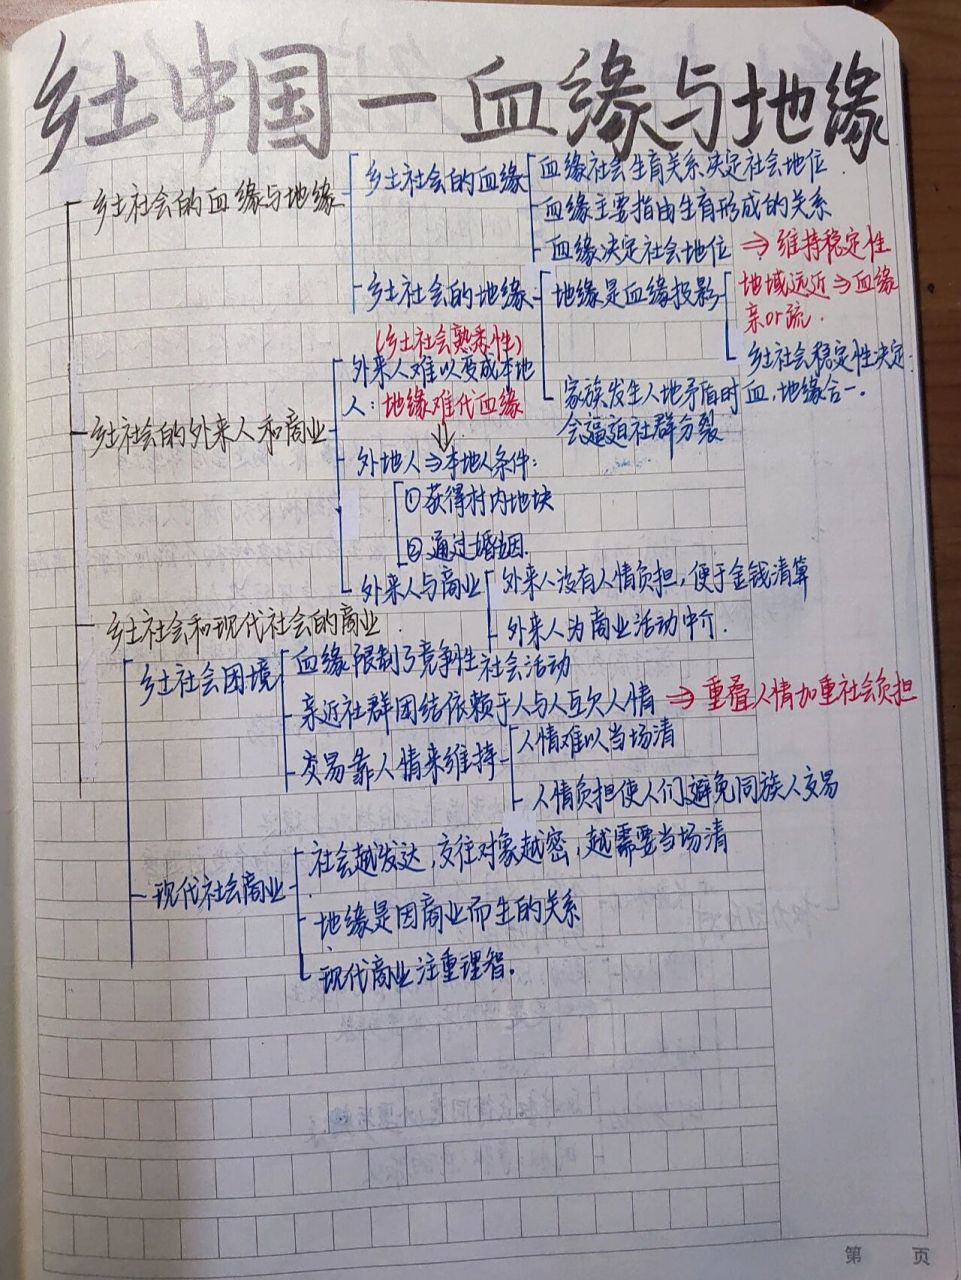 乡土中国—血缘与地缘
乡土社会的血缘与地缘
乡土社会的血缘
血缘社会生育关系决定社会地位
血缘主要指由生育形成的关系
血缘决定社会地位 ⇒ 维持稳定性
乡土社会的地缘
地缘是血缘投影
地域远近⇒血缘
亲or疏.
乡土社会稳定性决定:
血,地缘合一.
家族发生人地矛盾时
会逼迫社群分裂
乡土社会的外来人和商业
(乡土社会熟悉性)
外来人难以变成本地
人: 地缘难代血缘
外地人⇒本地人条件:
①获得村内地块
②通过婚姻.
外来人与商业
外来人没有人情负担,便于金钱清算
外来人为商业活动中介.
乡土社会和现代社会的商业.
乡土社会困境
血缘限制了竞争性社会活动
亲近社群团结依赖于人与人互欠人情 ⇒ 重叠人情加重社会负担
交易靠人情来维持
人情难以当场清
人情负担使人们避免同族人交易
现代社会商业
社会越发达,交往对象越密,越需要当场清
地缘是因商业而生的关系
现代商业注重理智.
第 页